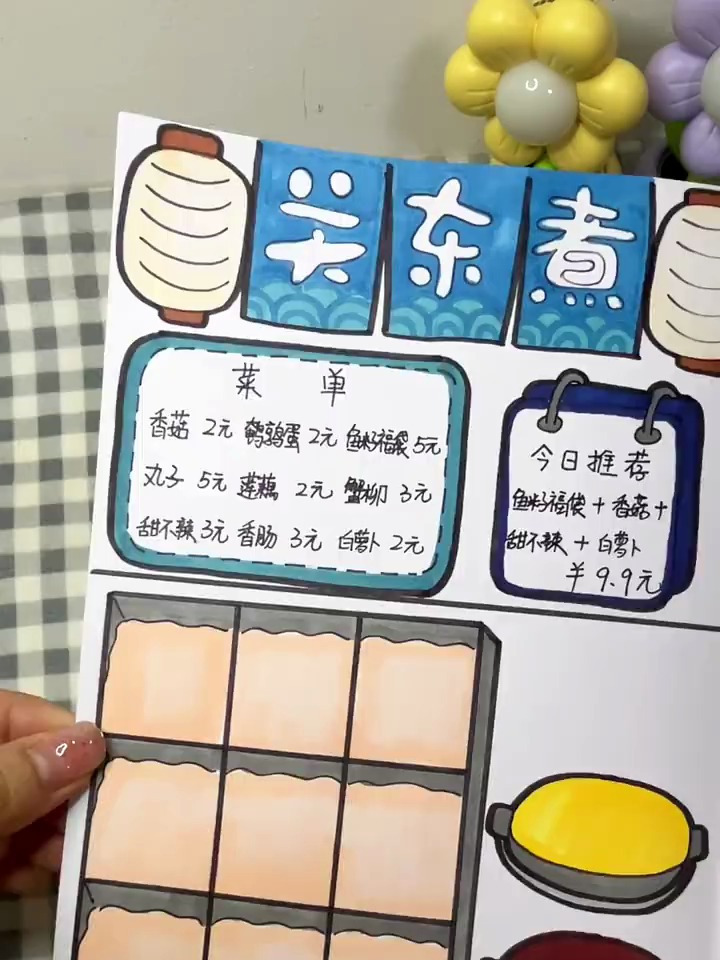 关东煮
菜单
香菇 2元 鹌鹑蛋 2元 鱼籽福袋 5元
丸子 5元 莲藕 2元 蟹柳 3元
甜不辣 3元 香肠 3元 白萝卜 2元
今日推荐
鱼籽福袋+香菇+
甜不辣+白萝卜
¥9.9元